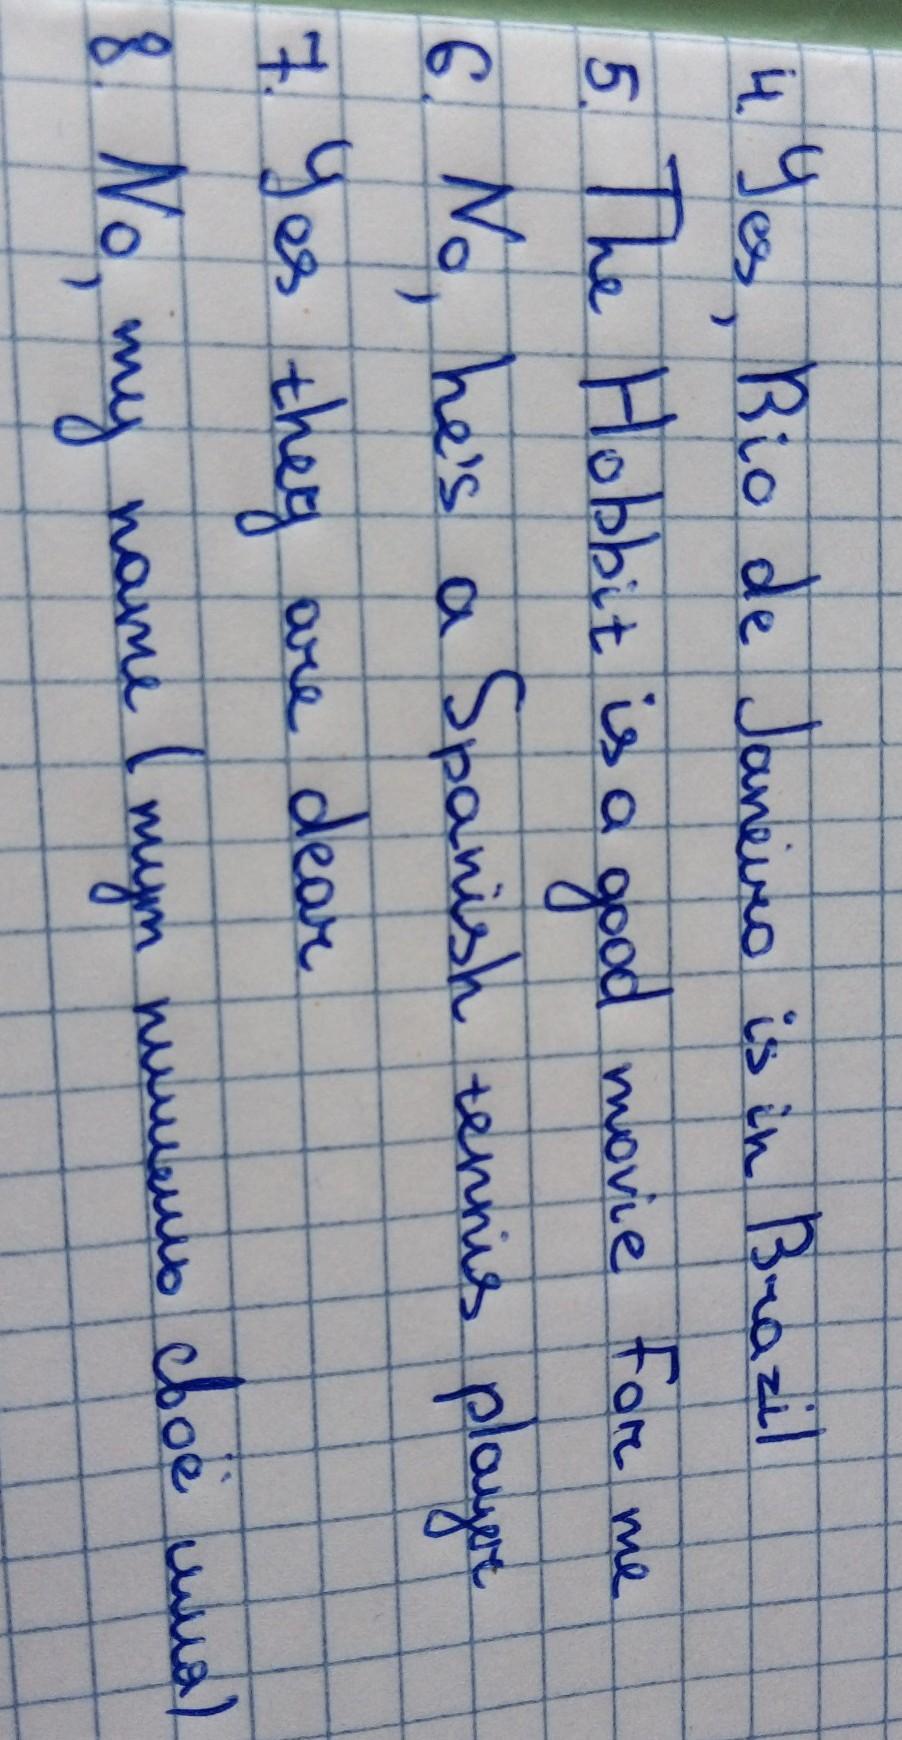 4. Yes, Bio de Janeiro is in Brazil
5. The Hobbit is a good movie For me
6. No, he's a Spanish tennis player
7. Yes they are dear
8. No, my name (тут пишешь своё имя)